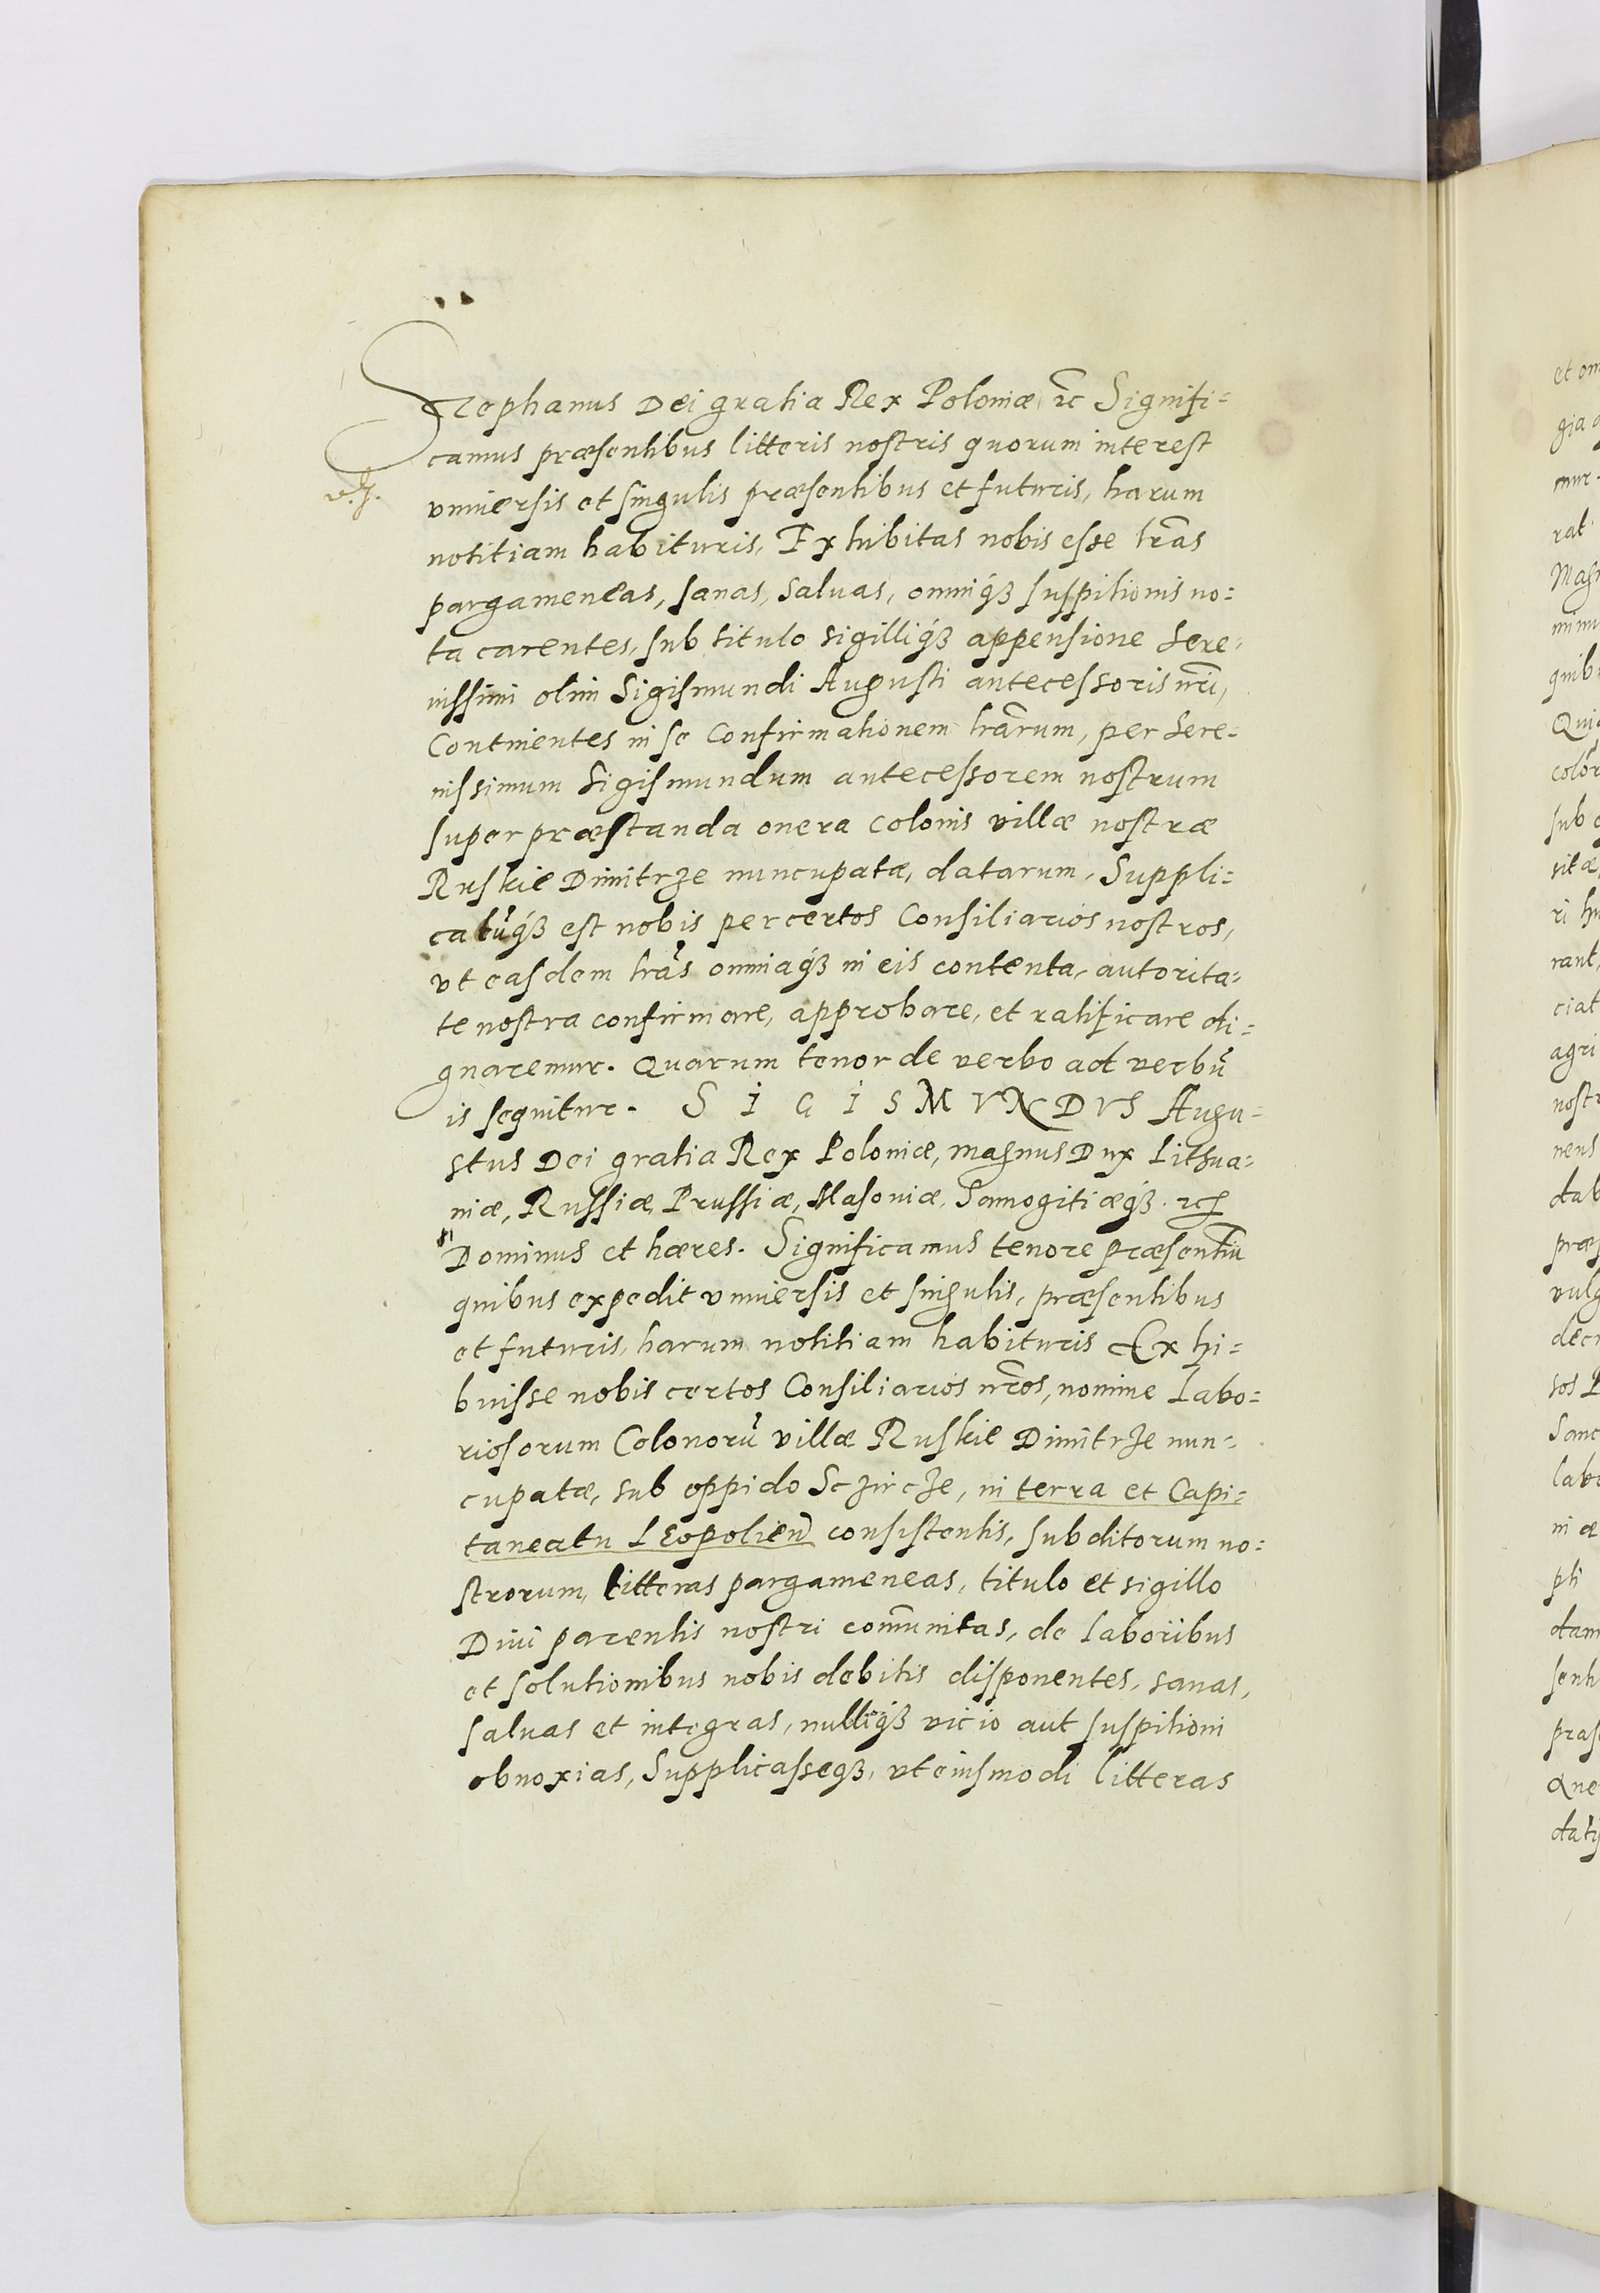 Stephanus Dei gratia Rex Poloniæ ꝛc Signifi=
camus præsentibus litteris nostris quorum interest
v. J.
vniuersis et singulis præsentibus et futuris, harum
notitiam habituris, Exhibitas nobis esse lr̃as
pargameneas, sanas, saluas, omniq́ꝫ suspitionis no=
ta carentes, sub titulo sigilliq́ꝫ appensione Sere=
nissimi olim Sigismundi Augusti antecessoris nr̃i,
Continentes in se Confirmationem lr̃arum, per Sere=
nissimum Sigismundum antecessorem nostrum
super præstanda onera colonis villæ nostræ
Ruskie Dimitrze nuncupatæ, datarum, Suppli=
catũq́ꝫ est nobis per certos Consiliarios nostros,
vt easdem lr̃as omniaq́ꝫ in eis contenta, autorita=
te nostra confirmare, approbare, et ratificare di=
gnaremur. Quarum tenor de verbo ad verbũ
is sequitur. SIGISMVNDVS Augu=
stus Dei gratia Rex Poloniæ, magnus Dux Lithua=
niæ, Russiæ, Prussiæ, Masoniæ, Samogitiæq́ꝫ ꝛc
Dominus et hæres. Significamus tenore præsentiũ
quibus expedit vniuersis et singulis, præsentibus
et futuris, harum notitiam habituris Exhi=
buisse nobis certos Consiliarios nr̃os, nomine Labo=
riosorum Colonorũ villæ Ruskie Dimitrze nun=
cupatæ, sub oppido Sczircze, in terra et Capi=
taneatu LEopolieñ consistentis, subditorum no=
strorum, litteras pargameneas, titulo et sigillo
Diui parentis nostri com̃unitas, de laboribus
et solutionibus nobis debitis disponentes, sanas,
saluas et integras, nulliq́ꝫ vicio aut suspitioni
obnoxias, Supplicasseqꝫ, vt eiusmodi litteras